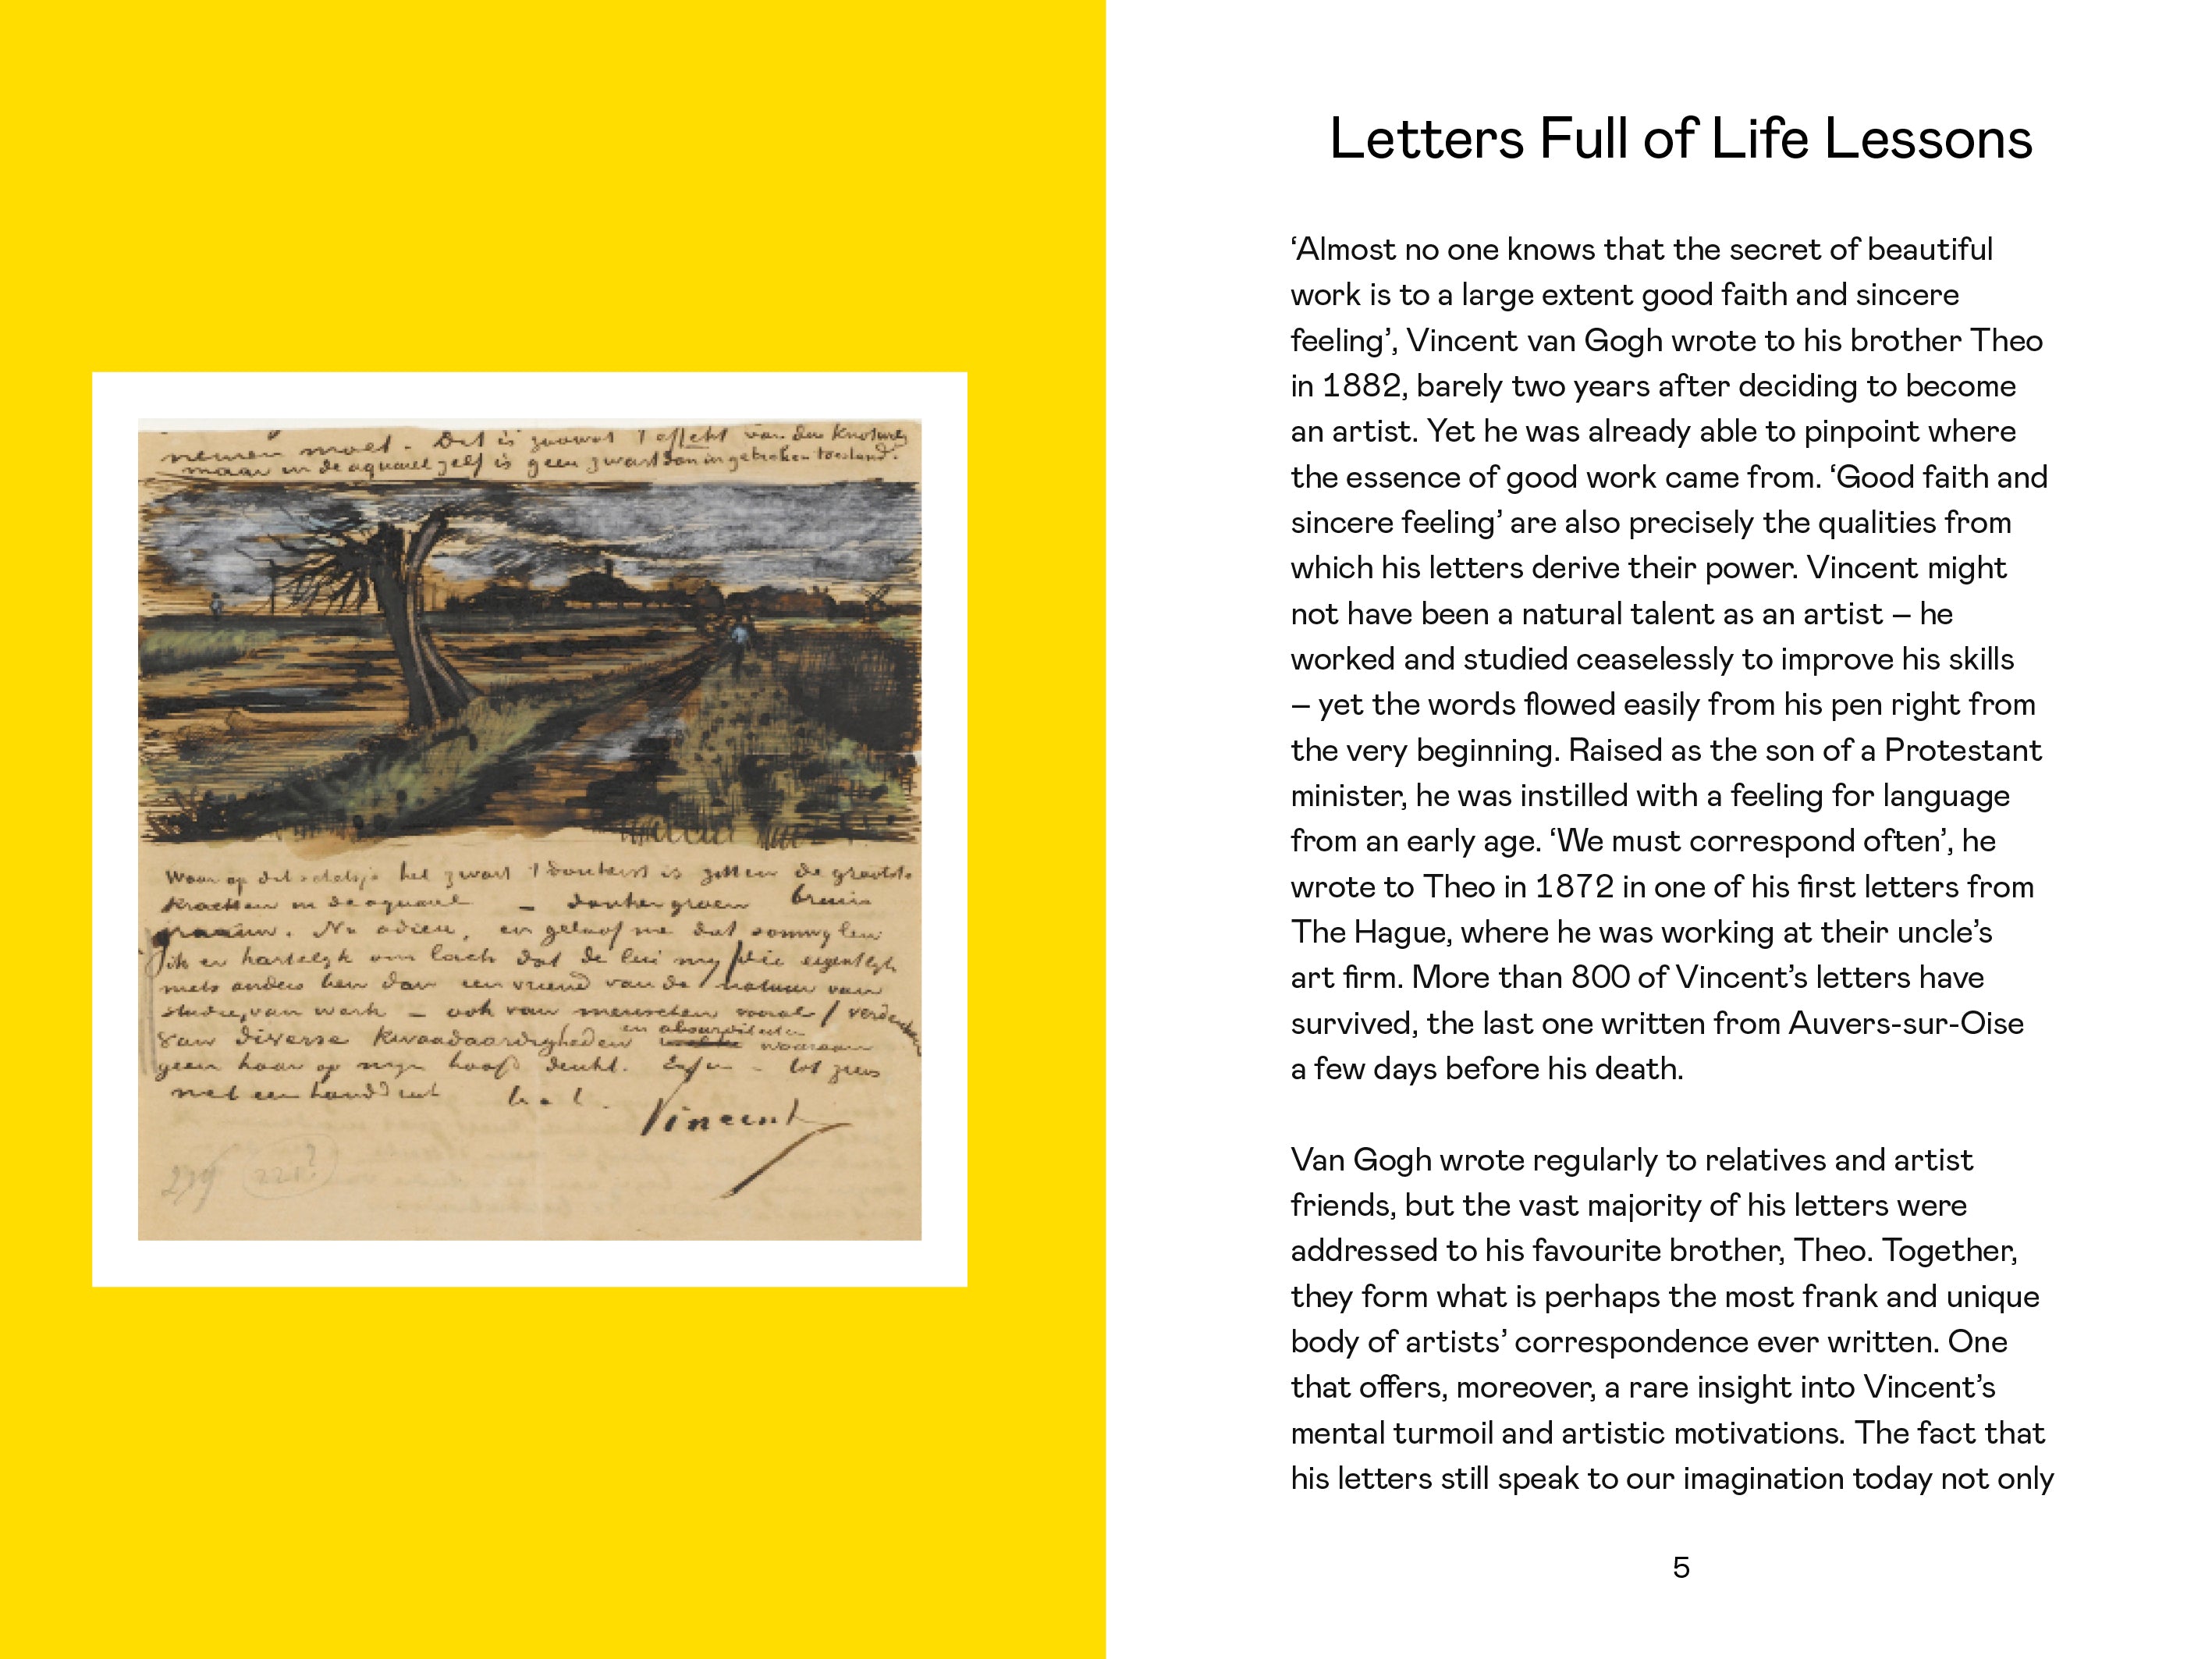 nemen moet. Dit is zoowat 't effekt van den Knotwilg
maar in de aquarel zelf is geen zwart dan in gebroken toestand.
Waar op dit schetsje het zwart 't donkerst is zitten de grootste
krachten in de aquarel – donkergroen bruin
graauw. Nu adieu, en geloof me dat somwijlen
ik er hartelijk om lach dat de lui mij die eigentlijk
niets anders ben dan een vriend van de natuur van
studie, van werk – ook van menschen vooral verdenken
van diverse kwaadaardigheden en absurditeiten waaraan
geen haar op mijn hoofd denkt. Enfin – tot ziens
met een handdruk t. à t.
Vincent
Letters Full of Life Lessons
‘Almost no one knows that the secret of beautiful
work is to a large extent good faith and sincere
feeling’, Vincent van Gogh wrote to his brother Theo
in 1882, barely two years after deciding to become
an artist. Yet he was already able to pinpoint where
the essence of good work came from. ‘Good faith and
sincere feeling’ are also precisely the qualities from
which his letters derive their power. Vincent might
not have been a natural talent as an artist – he
worked and studied ceaselessly to improve his skills
– yet the words flowed easily from his pen right from
the very beginning. Raised as the son of a Protestant
minister, he was instilled with a feeling for language
from an early age. ‘We must correspond often’, he
wrote to Theo in 1872 in one of his first letters from
The Hague, where he was working at their uncle’s
art firm. More than 800 of Vincent’s letters have
survived, the last one written from Auvers-sur-Oise
a few days before his death.
Van Gogh wrote regularly to relatives and artist
friends, but the vast majority of his letters were
addressed to his favourite brother, Theo. Together,
they form what is perhaps the most frank and unique
body of artists’ correspondence ever written. One
that offers, moreover, a rare insight into Vincent’s
mental turmoil and artistic motivations. The fact that
his letters still speak to our imagination today not only
5